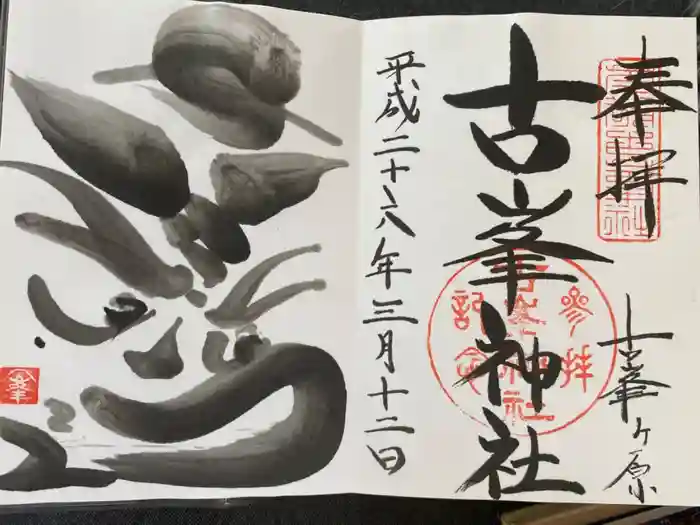 奉拝
古峯ヶ原
古峯神社
参拝
記念
平成二十六年三月十二日
峯